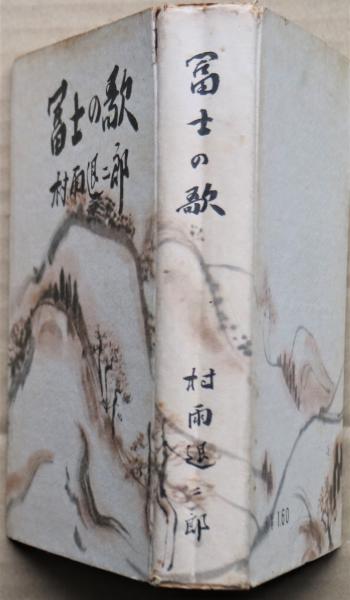 冨士の歌
村雨退二郎
冨士の歌
村雨退二郎
1.60